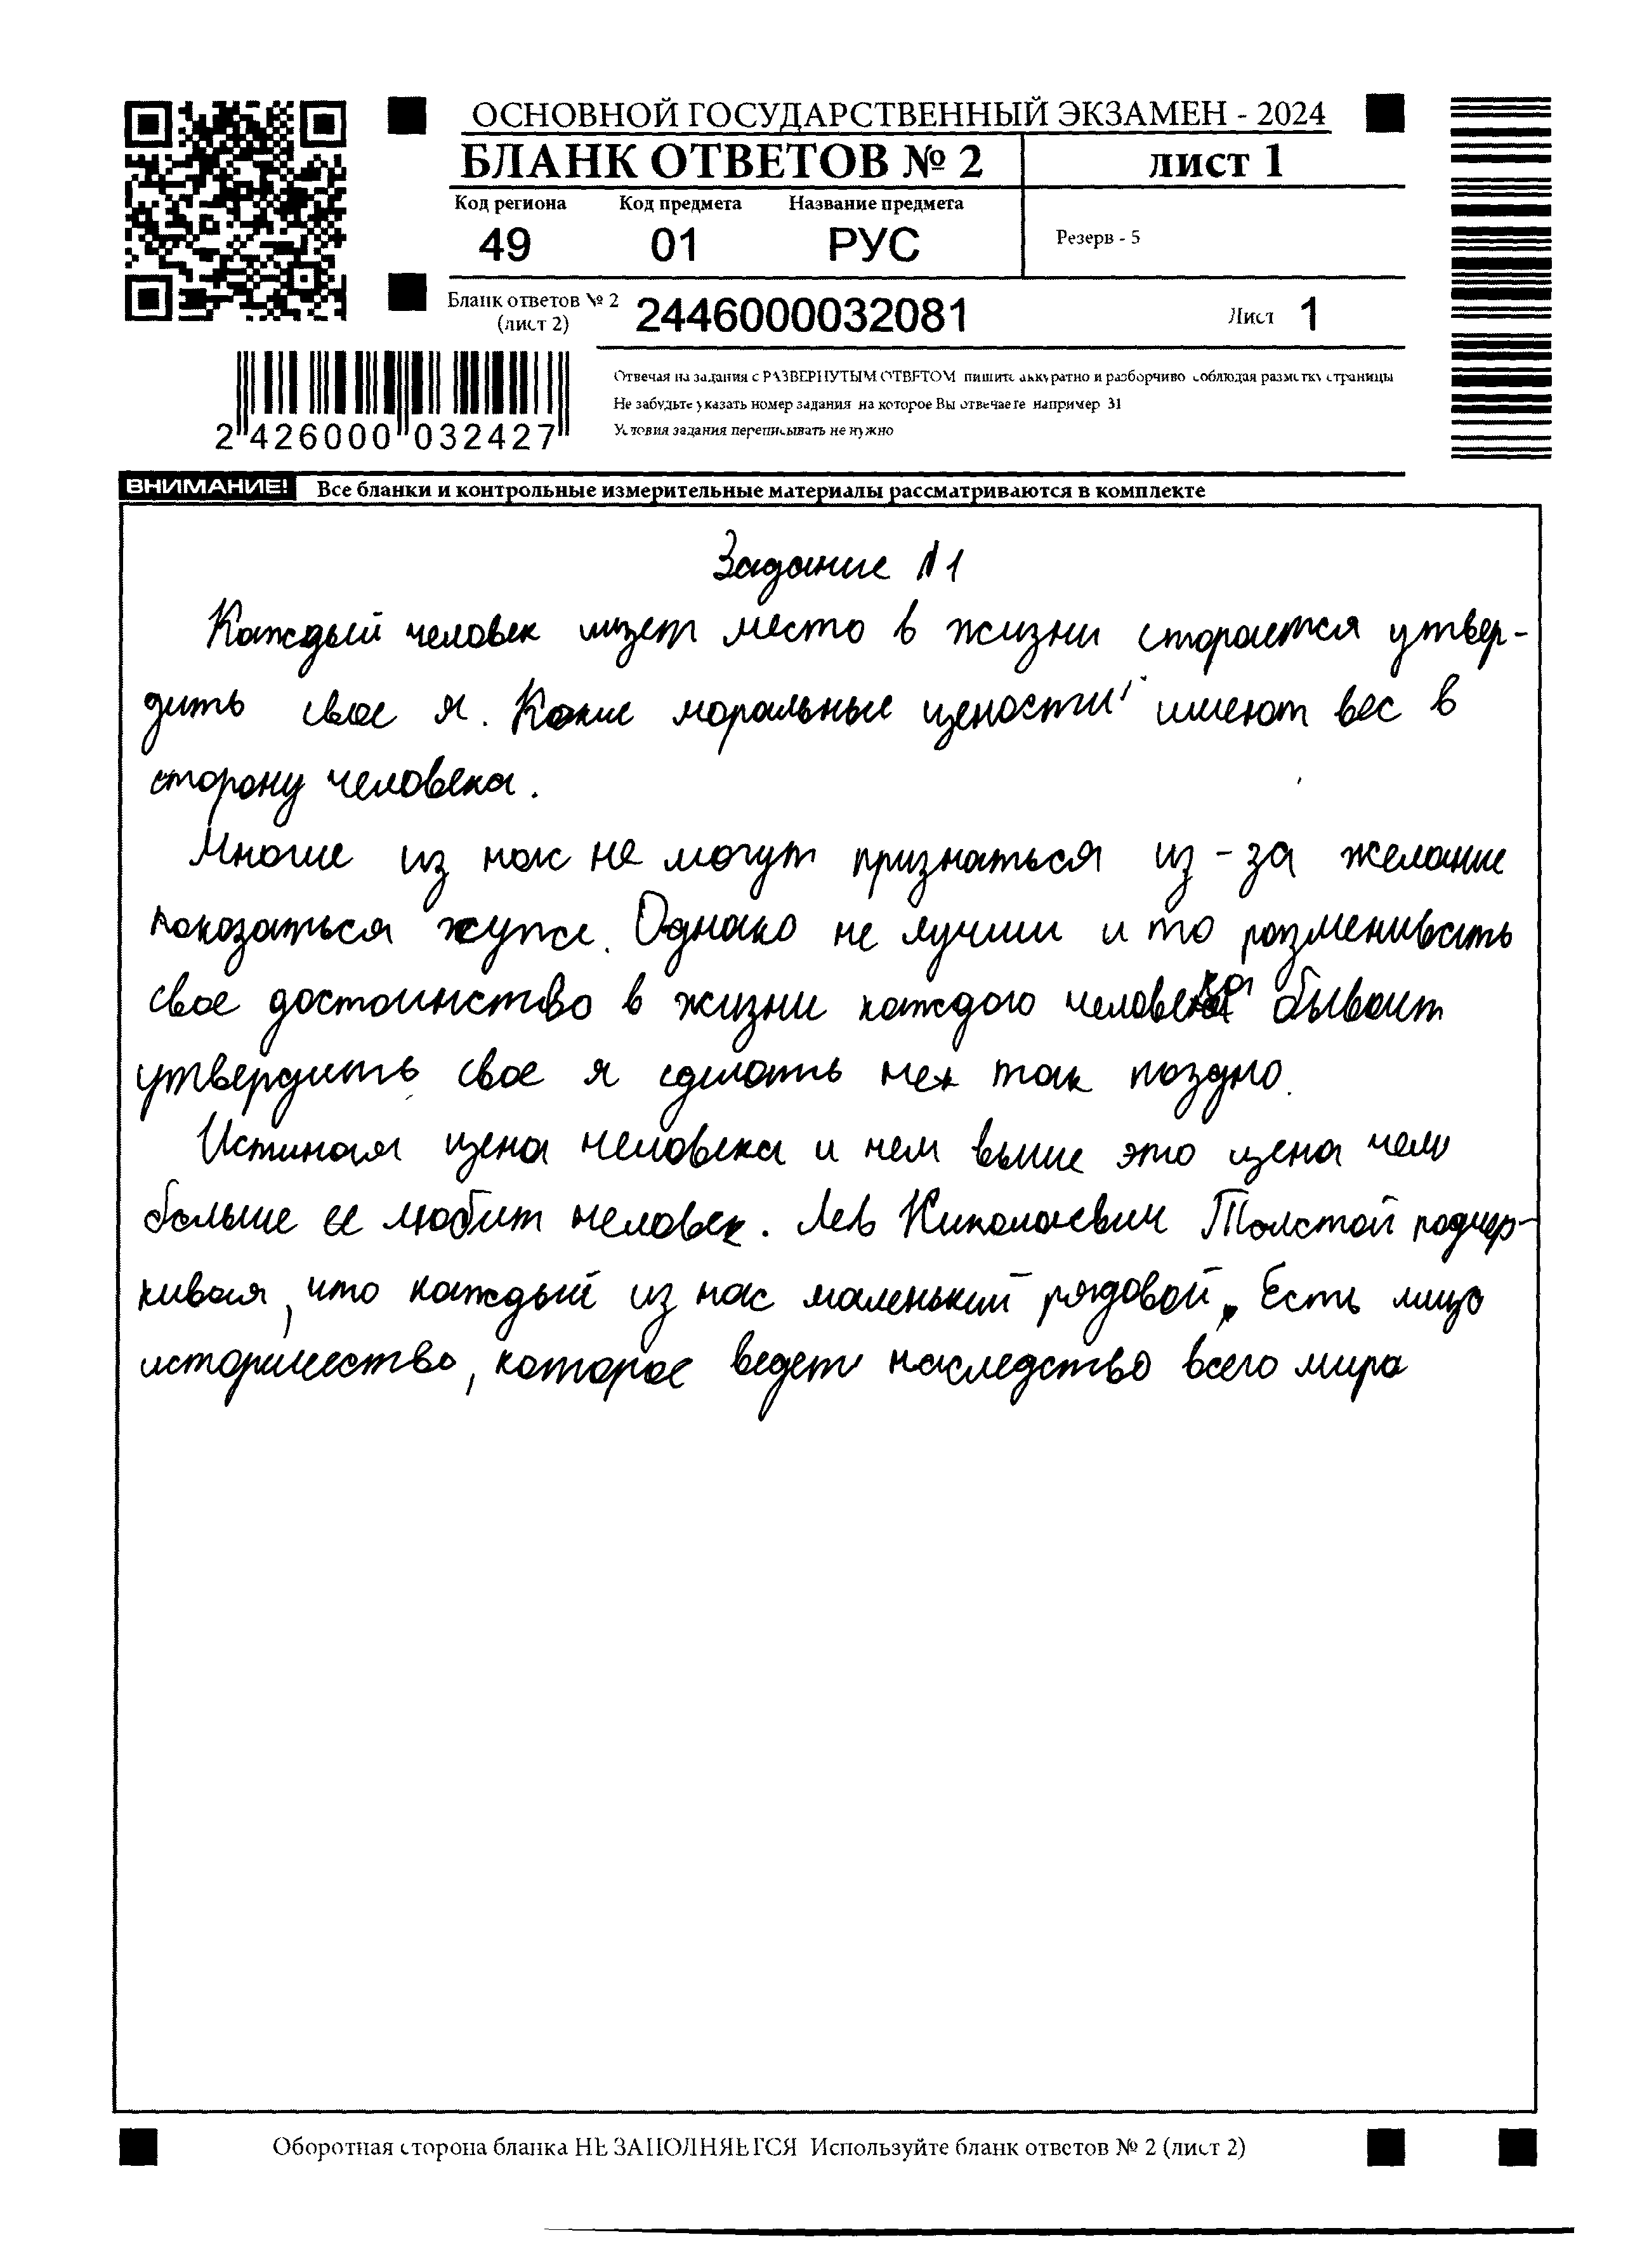 ОСНОВНОЙ ГОСУДАРСТВЕННЫЙ ЭКЗАМЕН - 2024
БЛАНК ОТВЕТОВ № 2
лист 1
Код региона Код предмета Название предмета
49 01 РУС
Резерв - 5
Бланк ответов № 2
(лист 2)
2446000032081
Лист 1
Отвечая на задания с РАЗВЕРНУТЫМ ОТВЕТОМ пишите аккуратно и разборчиво соблюдая разметку страницы
Не забудьте указать номер задания на которое Вы отвечаете например 31
Условия задания переписывать не нужно
2 426000 032427
ВНИМАНИЕ! Все бланки и контрольные измерительные материалы рассматриваются в комплекте
Задание N1
Каждый человек ищет место в жизни старается утвер-
дить свое я. Какие моральные цености имеют вес в
сторону человека.
Многие из нас не могут признаться из-за желание
показаться хуже. Однако не лучши и то разменивать
свое достоинство в жизни каждого человека бывает
утвердить свое я сделать так поздно.
Истиная цена человека и чем выше это цена чем
больше ее любит человек. Лев Николаевич Толстой подчер-
кивая, что каждый из нас маленький рядовой. Есть лицо
историчество, которое ведет наследство всего мира
Оборотная сторона бланка НЕ ЗАПОЛНЯЕТСЯ Используйте бланк ответов № 2 (лист 2)